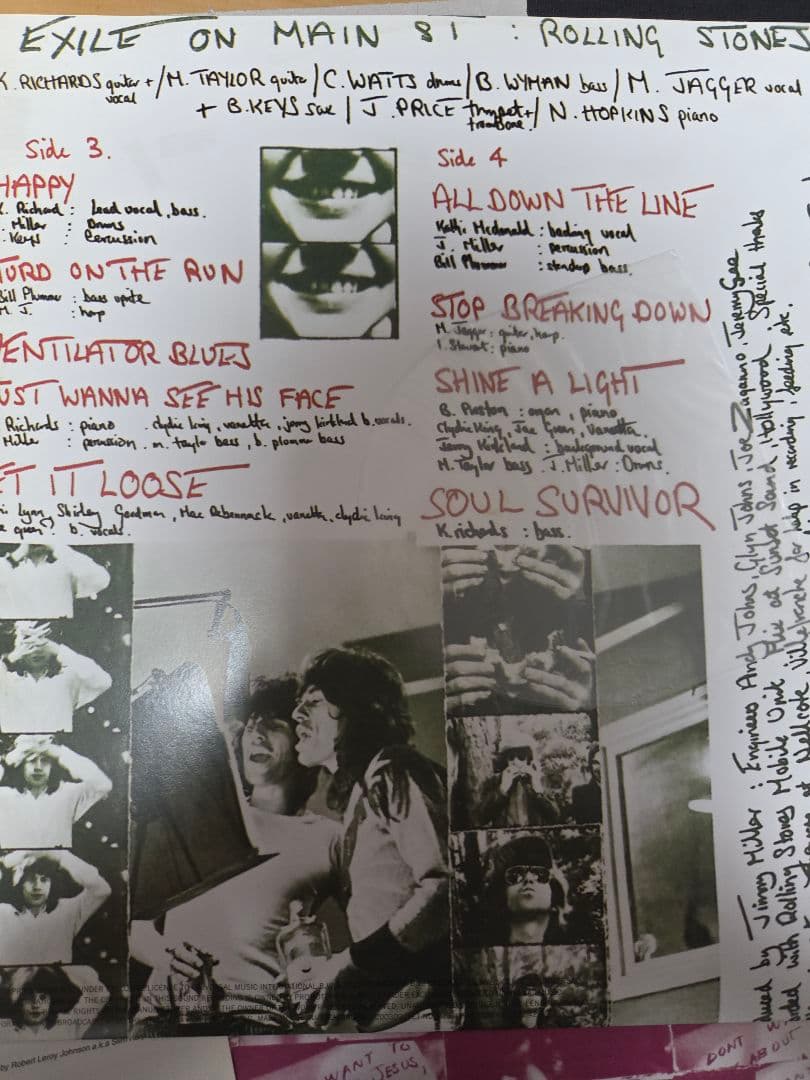 EXILE ON MAIN ST : ROLLING STONES
K. RICHARDS guitar + vocal / M. TAYLOR guitar / C. WATTS drums / B. WYMAN bass / M. JAGGER vocal
+ B. KEYS sax / J. PRICE trumpet + trombone / N. HOPKINS piano
Side 3.
HAPPY
K. Richard : Lead vocal, bass.
Miller : Drums
Keys : Percussion
TURD ON THE RUN
Bill Plummer : bass uprite
M. J. : harp
VENTILATOR BLUES
JUST WANNA SEE HIS FACE
Richards : piano . clydie king, vanetta, jerry kirkland b. vocals.
Miller : percussion . m. taylor bass, b. plummer bass
LET IT LOOSE
Lynn, Shirley Goodman, Mac Rebennack, vanetta, clydie king
b. vocals.
Side 4
ALL DOWN THE LINE
Kathi Mcdonald : backing vocal
J. Miller : percussion
Bill Plummer : standup bass.
STOP BREAKING DOWN
M. Jagger : guitar, harp.
I. Stewart : piano
SHINE A LIGHT
B. Preston : organ, piano
Clydie King, Joe Green, Vanetta,
Jerry Kirkland : background vocal
M. Taylor bass . J. Miller : Drums.
SOUL SURVIVOR
K richards : bass.
by Jimmy Miller : Engineers Andy Johns, Glyn Johns, Joe Zagarino, Jeremy Gee
with Rolling Stones Mobile Unit at Sunset Sound Hollywood Special thanks
at Nellcote, Villefranche for help in recording feeding etc.
UNDER LICENSE TO UNIVERSAL MUSIC INTERNATIONAL B.V.
by Robert Leroy Johnson a.k.a
WANT TO
JESUS,
DONT
ABOUT